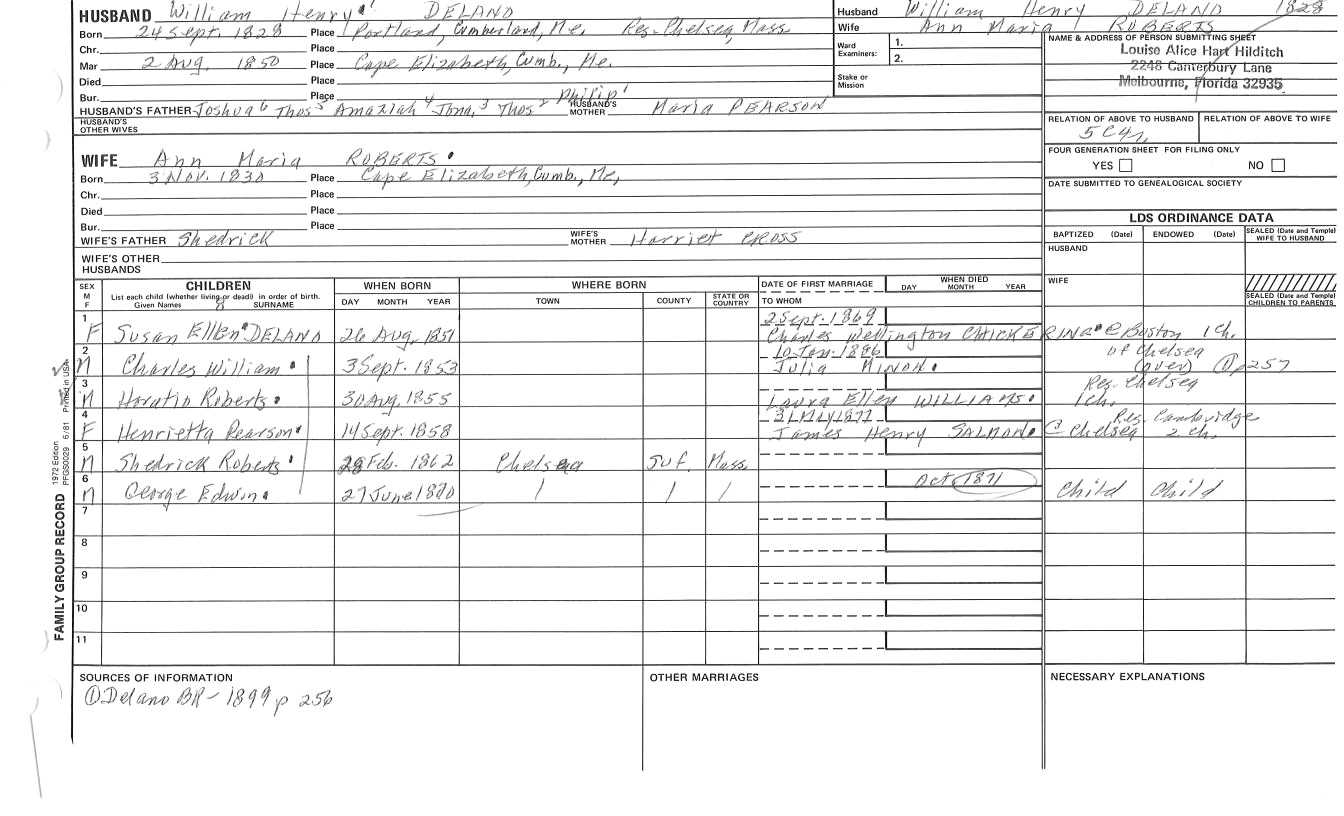 HUSBAND William Henry DELANO
Born 24 Sept. 1828 Place Portland, Cumberland, Me. Res. Chelsea, Mass.
Chr. Place
Mar 2 Aug, 1850 Place Cape Elizabeth, Cumb., Me.
Died Place
Bur. Place
HUSBAND'S FATHER Joshua 6 Thos 5 Amaziah 4 Jona. 3 Thos 2 Philip 1 HUSBAND'S MOTHER Maria PEARSON
HUSBAND'S OTHER WIVES
Husband William Henry DELANO 1828
Wife Ann Maria ROBERTS
Ward Examiners: 1.
2.
Stake or Mission
NAME & ADDRESS OF PERSON SUBMITTING SHEET
Louise Alice Hart Hilditch
2248 Canterbury Lane
Melbourne, Florida 32935
RELATION OF ABOVE TO HUSBAND RELATION OF ABOVE TO WIFE
FOUR GENERATION SHEET FOR FILING ONLY
YES NO
DATE SUBMITTED TO GENEALOGICAL SOCIETY
WIFE Ann Maria ROBERTS
Born 3 Nov. 1830 Place Cape Elizabeth, Cumb., Me,
Chr. Place
Died Place
Bur. Place
WIFE'S FATHER Shedrick WIFE'S MOTHER Harriet CROSS
WIFE'S OTHER HUSBANDS
LDS ORDINANCE DATA
BAPTIZED (Date) ENDOWED (Date) SEALED (Date and Temple) WIFE TO HUSBAND
HUSBAND
WIFE
SEALED (Date and Temple) CHILDREN TO PARENTS
SEX M F CHILDREN WHEN BORN WHERE BORN DATE OF FIRST MARRIAGE WHEN DIED
List each child (whether living or dead) in order of birth.
Given Names SURNAME DAY MONTH YEAR TOWN COUNTY STATE OR COUNTRY TO WHOM DAY MONTH YEAR
1 2 Sept. 1869
F Susan Ellen DELANO 26 Aug, 1851 Charles Wellington CHICKERING @ Boston 1 Ch.
2 10 Jan. 1886 of Chelsea
M Charles William 3 Sept. 1853 Julia MINON (over) ① p 257
3 Res. Chelsea
M Horatio Roberts 30 Aug, 1855 Laura Ellen WILLIAMS 1 ch.
4 31 May 1877 Res. Cambridge
F Henrietta Pearson 14 Sept. 1858 James Henry SALMON @ Chelsea 2 Ch.
5
M Shedrick Roberts 28 Feb. 1862 Chelsea Suf. Mass.
6 Oct 1871
M George Edwin 27 June 1870 / / / Child Child
7
8
9
10
11
SOURCES OF INFORMATION OTHER MARRIAGES NECESSARY EXPLANATIONS
① Delano BR- 1899 p 256
FAMILY GROUP RECORD
1972 Edition
PFGS0029 6/81 Printed in USA